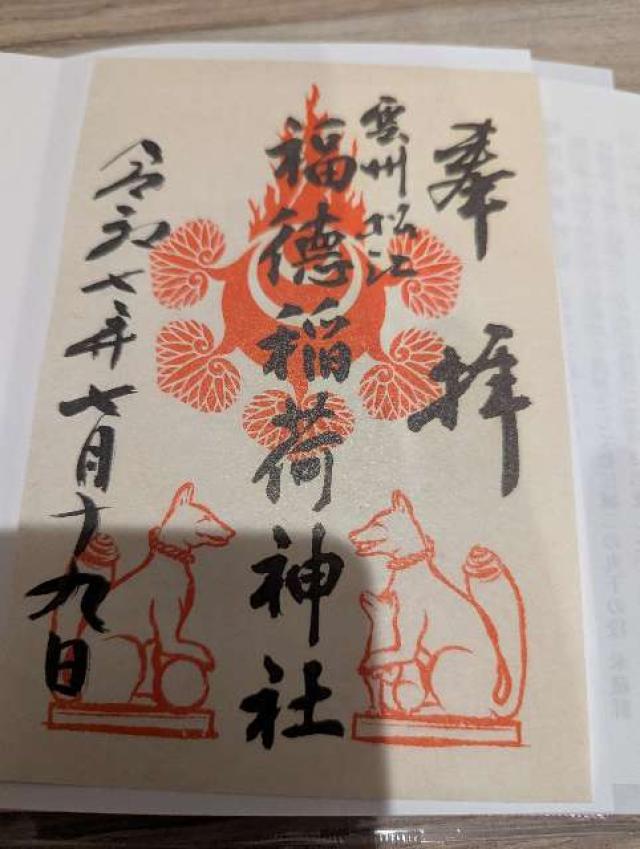 奉拝
雲州松江
福徳稲荷神社
令和七年七月十九日